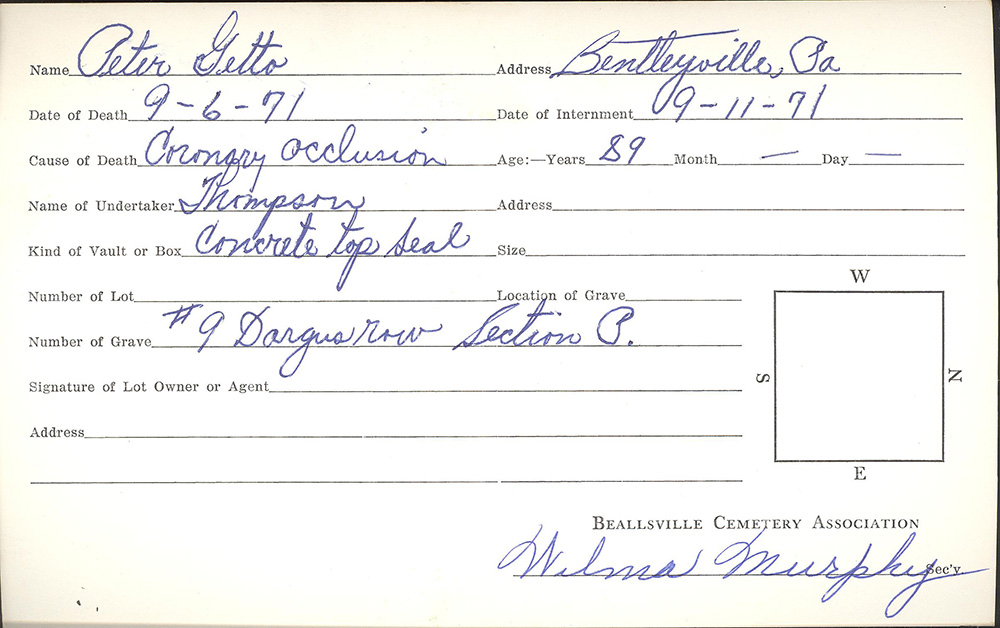 Name Peter Getto Address Bentleyville, Pa
Date of Death 9-6-71 Date of Internment 9-11-71
Cause of Death Coronary occlusion Age:—Years 89 Month — Day —
Name of Undertaker Thompson Address
Kind of Vault or Box Concrete top seal Size
Number of Lot Location of Grave
Number of Grave #9 Dargus row Section P.
Signature of Lot Owner or Agent
Address
W
S N
E
Beallsville Cemetery Association
Wilma Murphy Sec'y